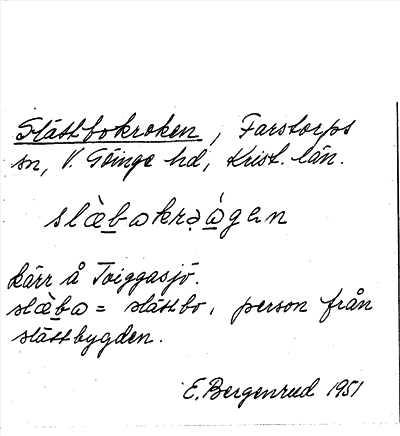 Slättbokroken, Farstorps
sn, V. Göinge hd, Krist. län.
slæ̀bakrəágen
kärr å Toiggasjö.
slæ̀ba = slättbo, person från
slättbygden.
E. Bergenrud 1951